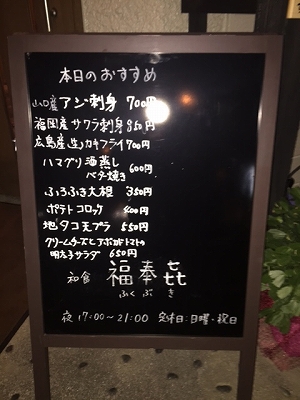 本日のおすすめ
山口産アジ刺身 700円
福岡産サワラ刺身 850円
広島産生カキフライ 700円
ハマグリ酒蒸し 600円
バター焼き
ふろふき大根 350円
ポテトコロッケ 400円
地タコ天プラ 550円
クリームチーズとアボカドトマト
明太子サラダ 650円
和食 福奉㐂
ふくぶき
夜17:00〜21:00 定休日:日曜・祝日